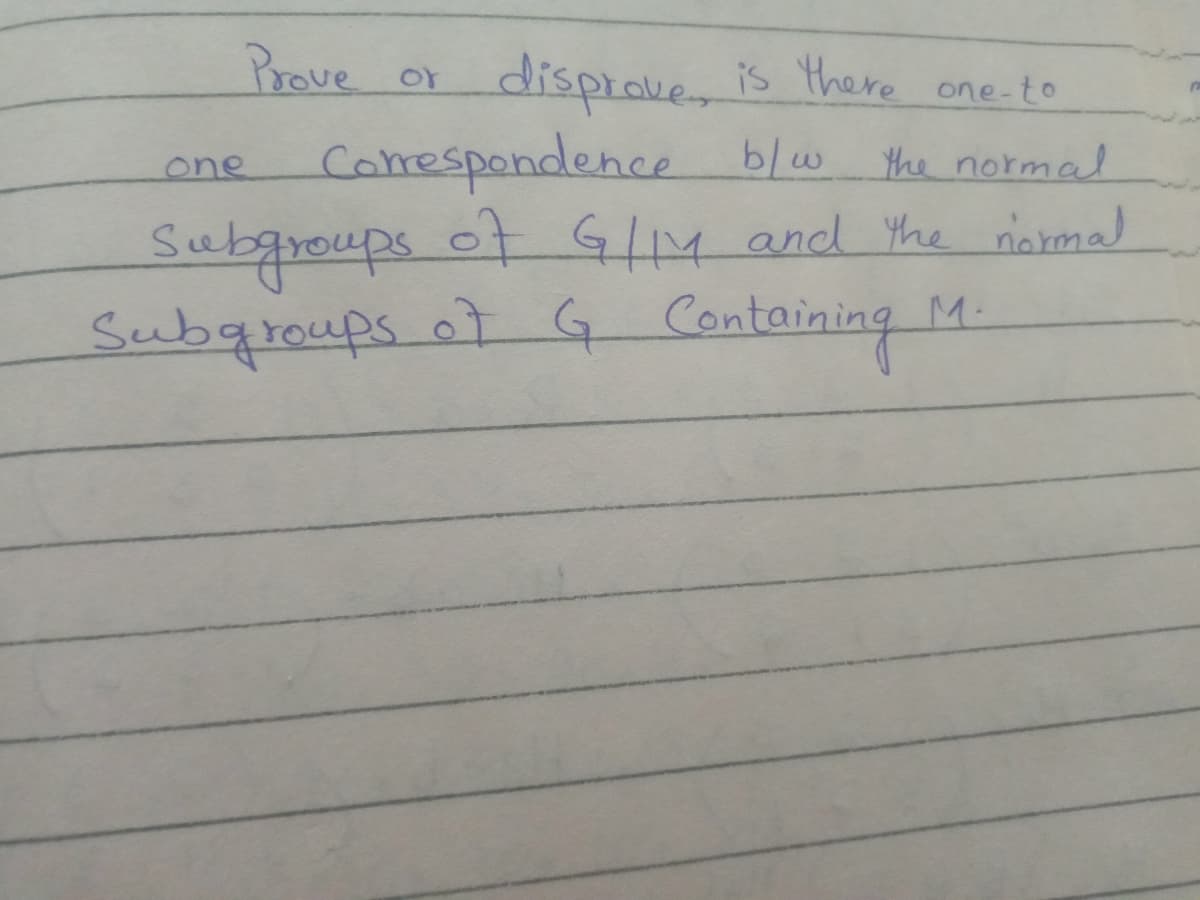 Prove or disprove, is there one-to
one Correspondence b/w the normal
Subgroups of G/M and the normal
Subgroups of G Containing M.